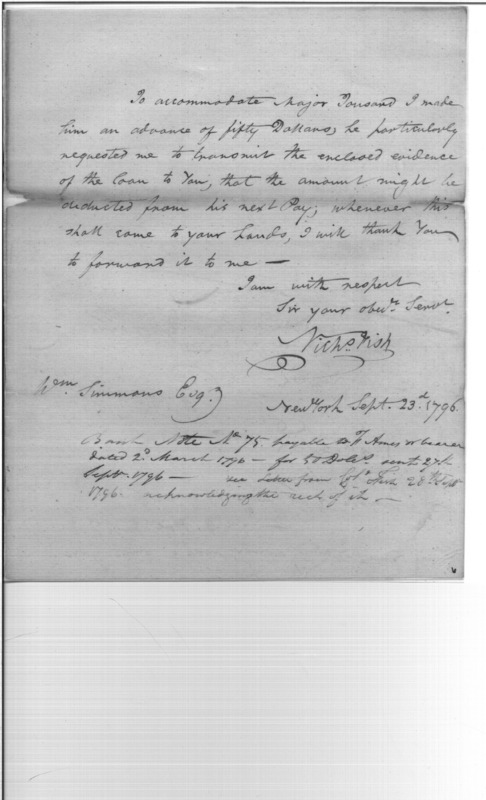 To accommodate Major Tousard I made
him an advance of fifty Dollars; he particularly
requested me to transmit the enclosed evidence
of the loan to You, that the amount might be
deducted from his next Pay; whenever this
shall come to your hands, I will thank You
to forward it to me —
I am with respect
Sir your obedt. Servt.
Nichs. Fish
Wm. Simmons Esq.
New York Sept. 23d. 1796.
Bank Note No. 75. payable to F Ames or bearer
dated 2d. March 1796 — for 50 Dolls. sent 27th
Septr. 1796 — see letter from Col. Fish 28th Sept
1796. acknowledging the rect. of it —